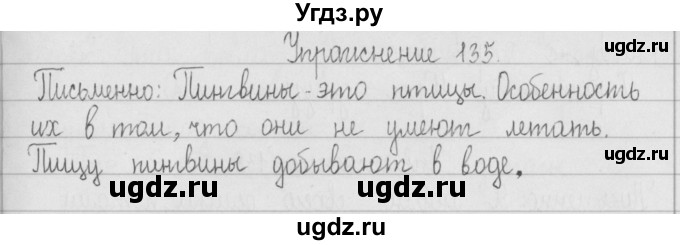 Угдз.ру
ugdz.ru ugdz.ru
Упражнение 135.
Письменно: Пингвины - это птицы. Особенность
их в том, что они не умеют летать.
ugdz.ru
Пищу пингвины добывают в воде.
ugdz.ru ugdz.ru ugdz.ru
ugdz.ru